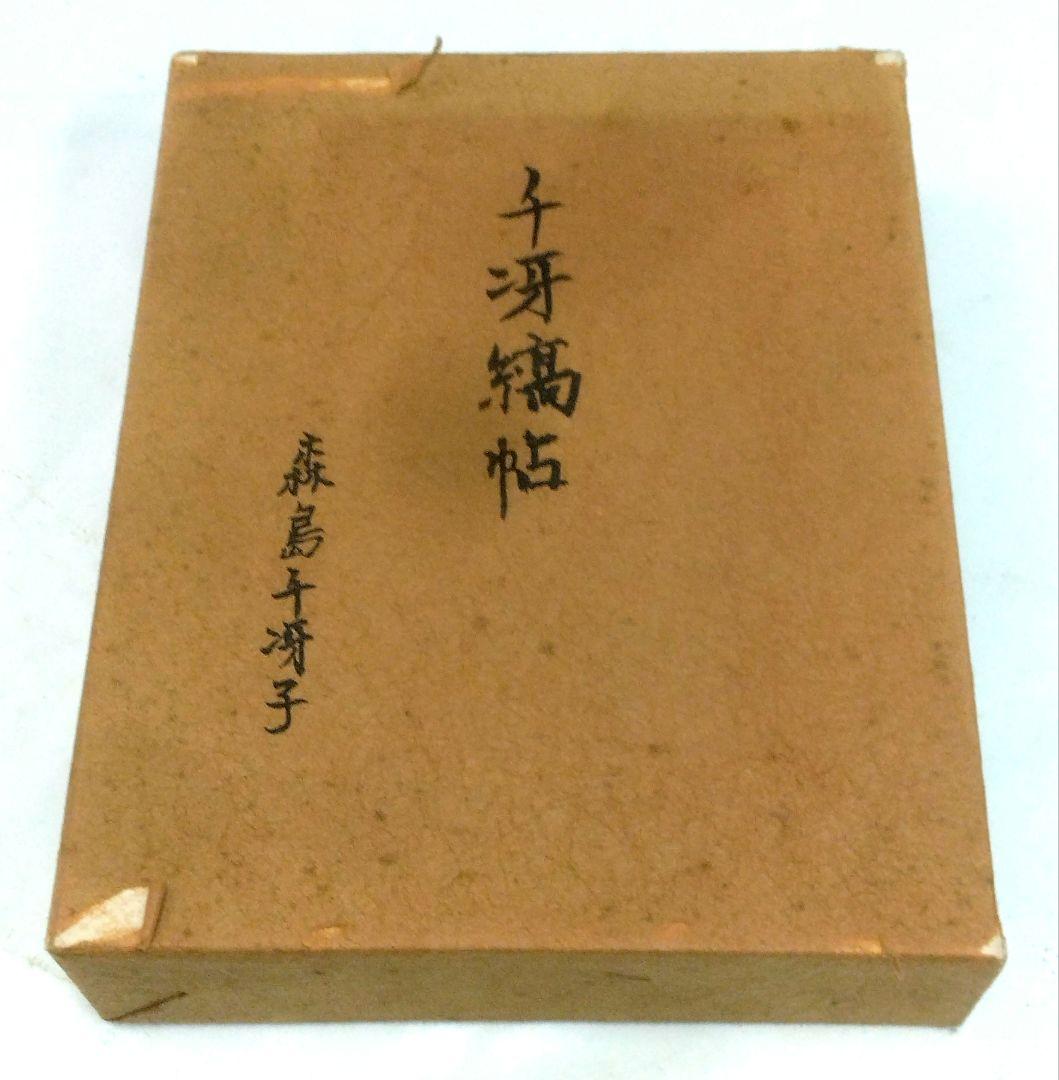 千冴縞帖
森島千冴子